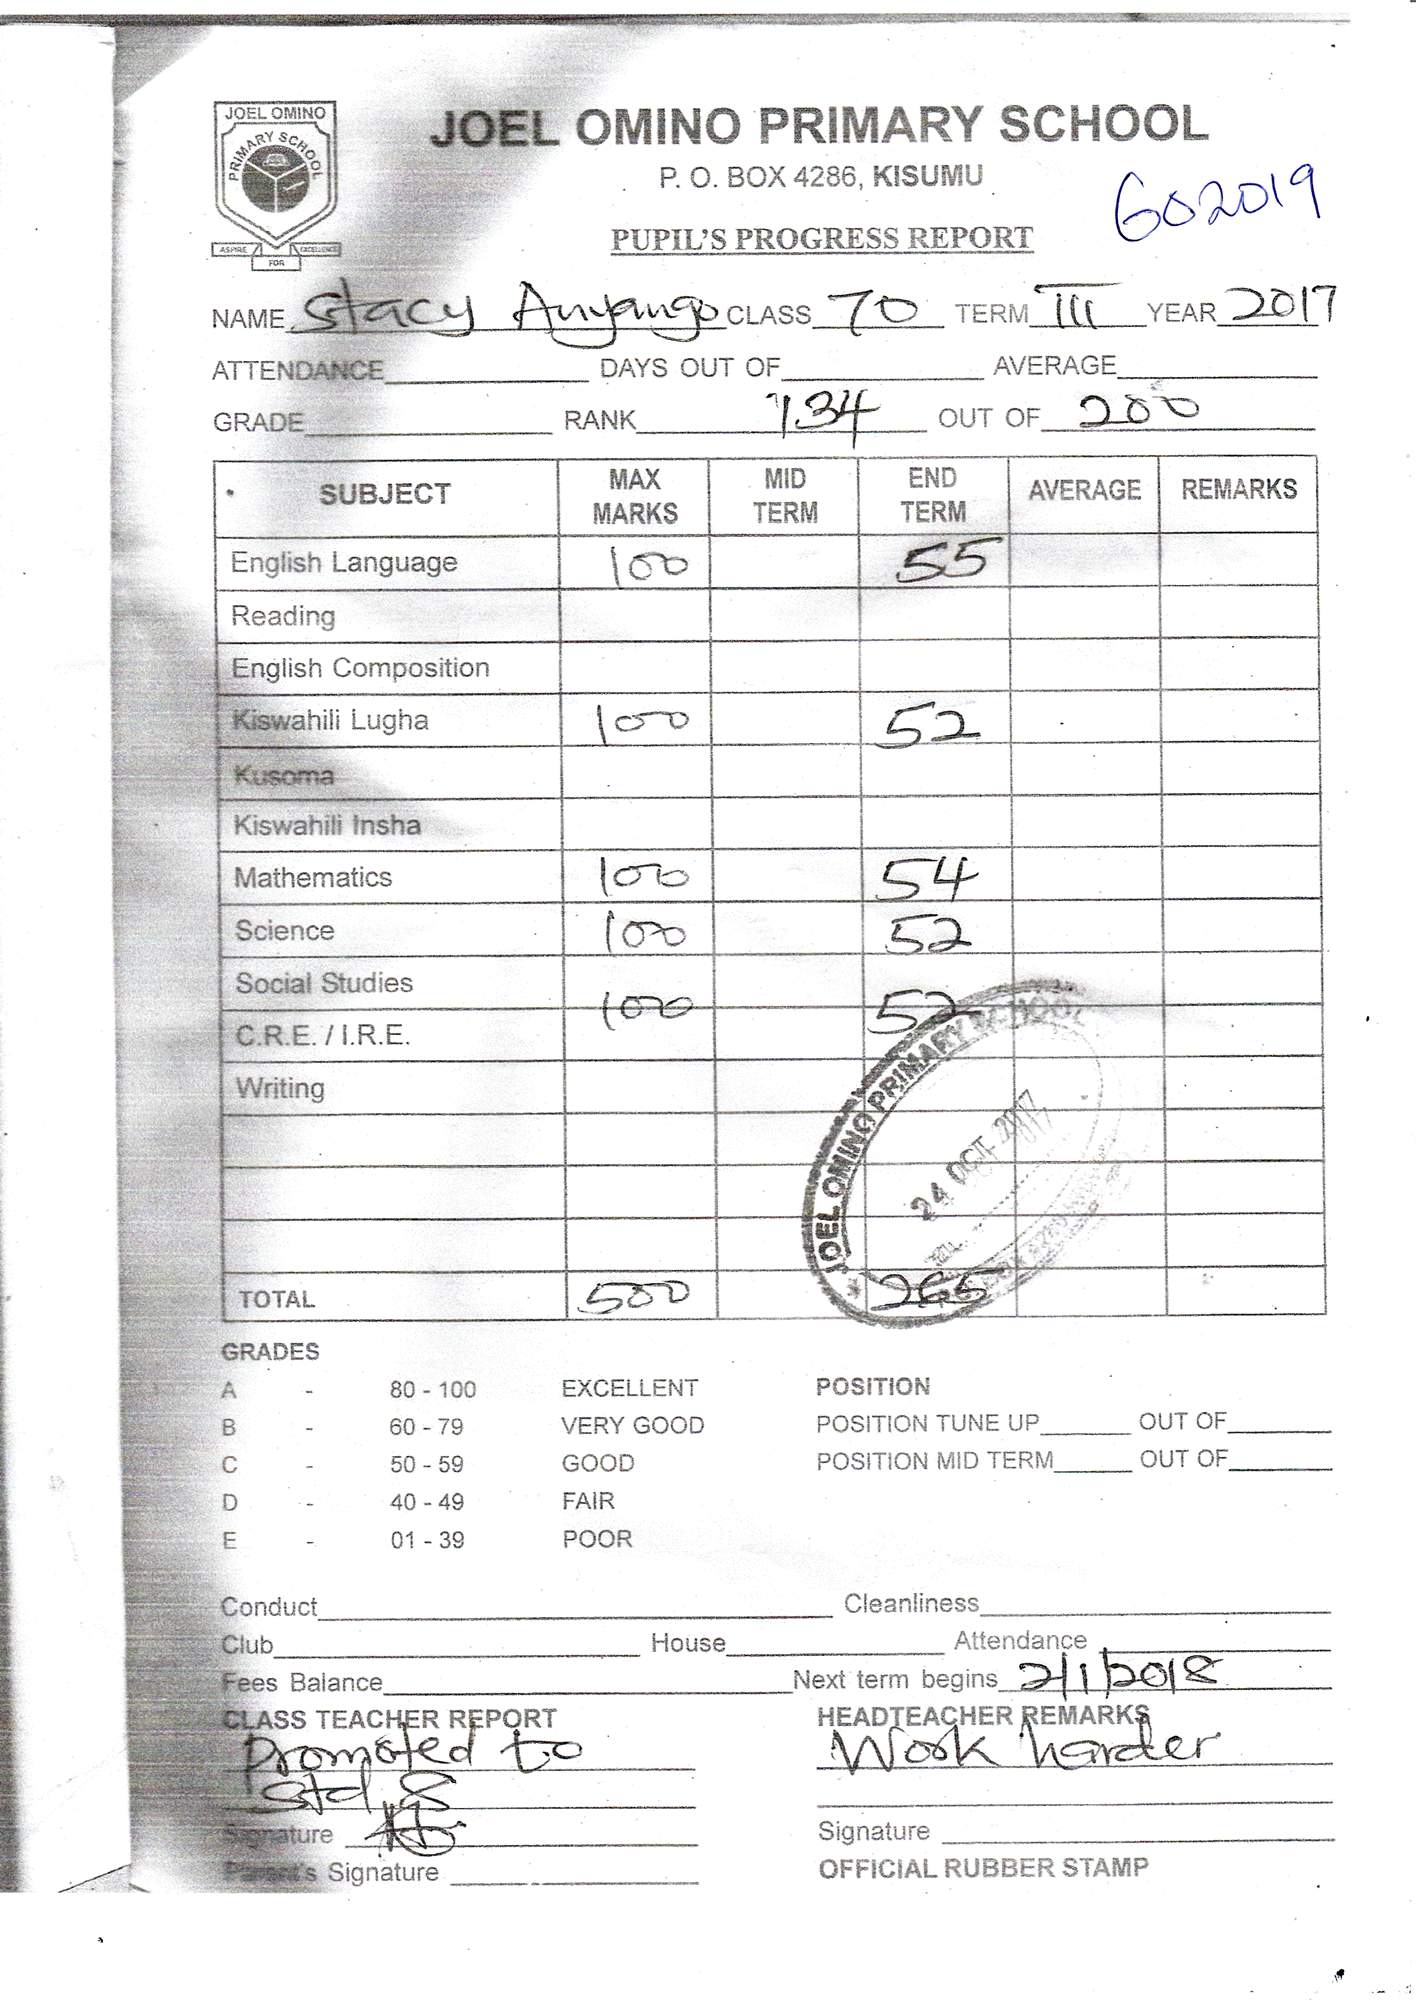 JOEL OMINO
PRIMARY SCHOOL
ASPIRE FOR EXCELLENCE
JOEL OMINO PRIMARY SCHOOL
P. O. BOX 4286, KISUMU
602019
PUPIL'S PROGRESS REPORT
NAME Stacy Anyango CLASS 70 TERM III YEAR 2017
ATTENDANCE DAYS OUT OF AVERAGE
GRADE RANK 134 OUT OF 200
SUBJECT MAX MARKS MID TERM END TERM AVERAGE REMARKS
English Language 100 55
Reading
English Composition
Kiswahili Lugha 100 52
Kusoma
Kiswahili Insha
Mathematics 100 54
Science 100 52
Social Studies
100 52
C.R.E. / I.R.E.
Writing
JOEL OMINO PRIMARY SCHOOL
24 OCT 2017
TOTAL 500 265
GRADES
A - 80 - 100 EXCELLENT POSITION
B - 60 - 79 VERY GOOD POSITION TUNE UP OUT OF
C - 50 - 59 GOOD POSITION MID TERM OUT OF
D - 40 - 49 FAIR
E - 01 - 39 POOR
Conduct Cleanliness
Club House Attendance
Fees Balance Next term begins 2/1/2018
CLASS TEACHER REPORT HEADTEACHER REMARKS
Promoted to Work harder
Std 8
Signature Signature
Parent's Signature OFFICIAL RUBBER STAMP